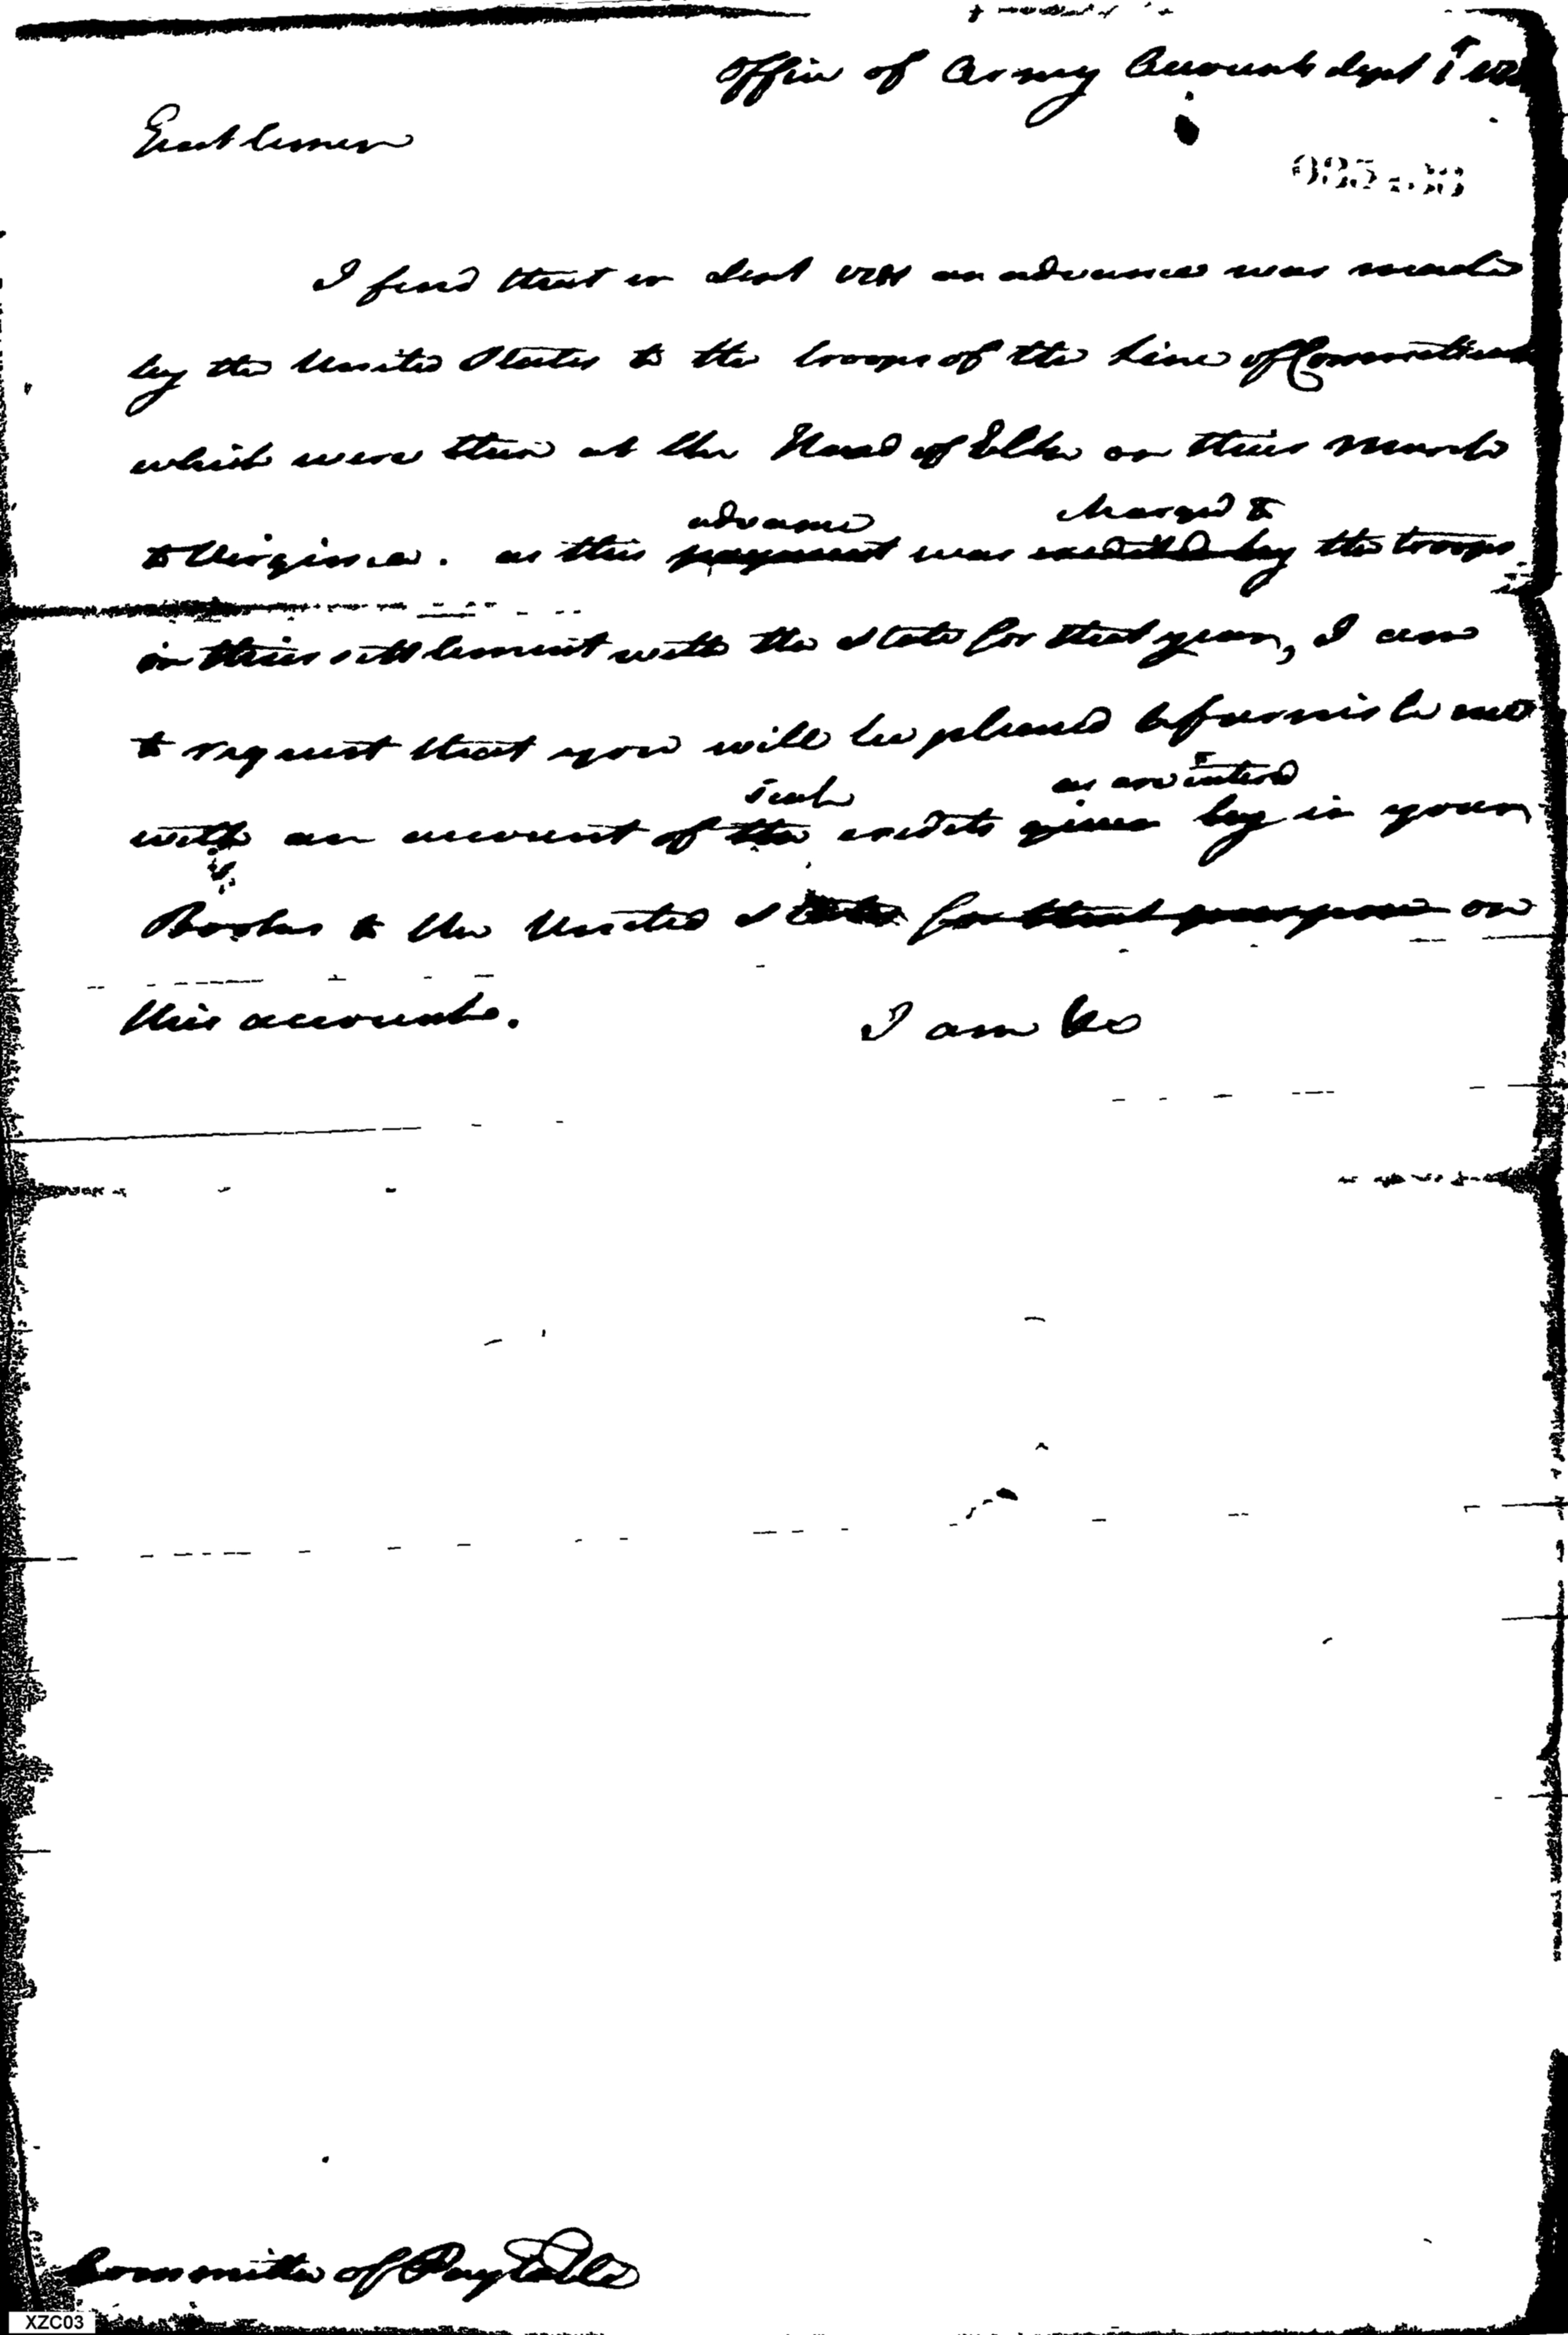 Office of Army Accounts Sept 1
Gentlemen
I find that in Sept 1781 an advance was made
by the United States to the troops of the Line of Connecticut
which were then at the Head of Elk on their March
advance charged to
to Virginia. as this payment was credited by the troops
in their settlement with the State for that year, I am
to request that you will be pleased to furnish me
such as are enterd
with an account of the credits given by in your
Books to the United States for that purpose on
this accounts.
I am &c
Committee of Paytable
XZC03